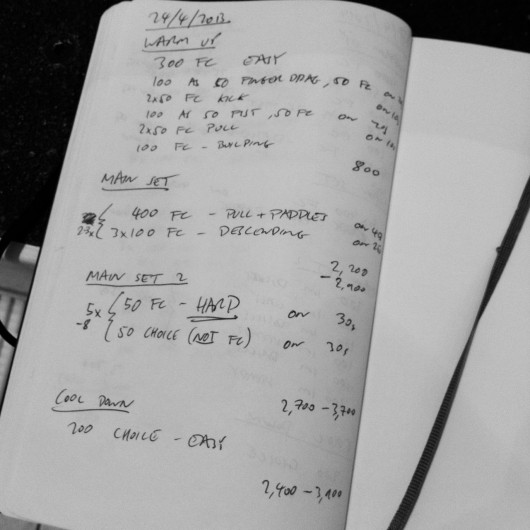 24/4/2013
WARM UP
300 FC EASY
100 AS 50 FINGER DRAG, 50 FC on
2x50 FC KICK on
100 AS 50 FIST, 50 FC on
2x50 FC PULL on
100 FC - BUILDING
800
MAIN SET
400 FC - PULL + PADDLES on
2-3x 3x100 FC - DESCENDING on
2,200
MAIN SET 2
5x 50 FC - HARD on 30s
-8 50 CHOICE (NOT FC) on 30s
2,700 - 3,700
COOL DOWN
200 CHOICE - EASY
2,900 - 3,900